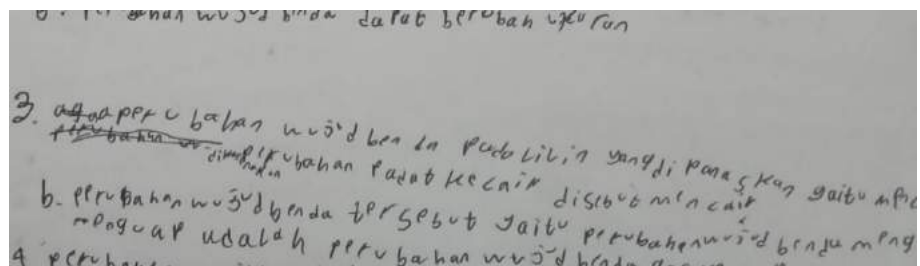 perubahan wujud benda dapat berubah ukuran
3. a perubahan wujud benda pada lilin yang dipanaskan yaitu
perubahan padat ke cair disebut mencair
b. perubahan wujud benda tersebut yaitu perubahan wujud benda meng
menguap adalah perubahan wujud benda
4